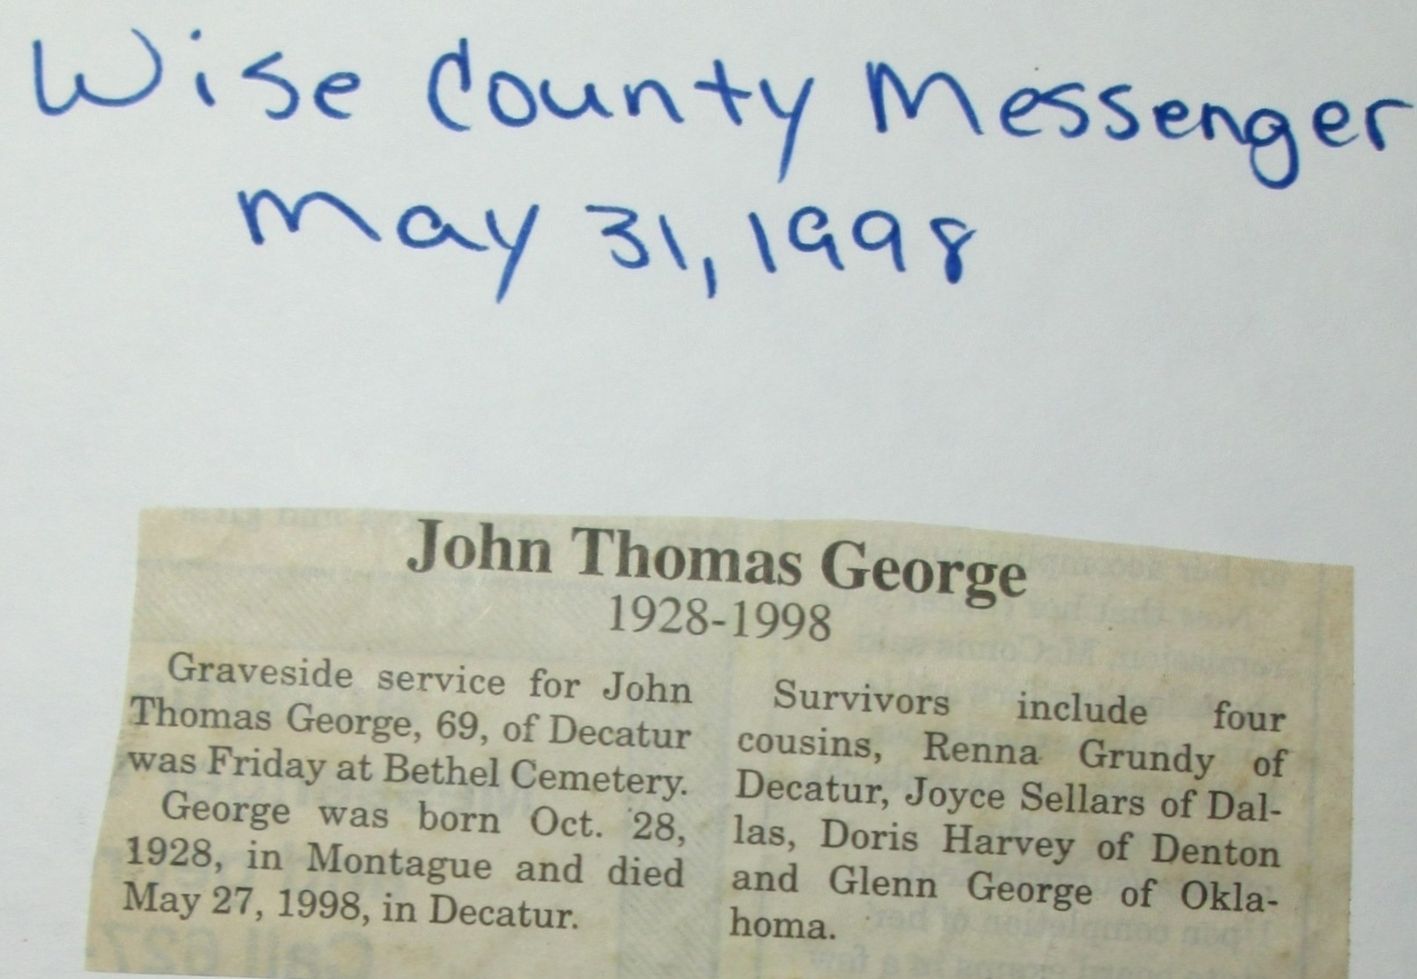 Wise County Messenger
May 31, 1998
John Thomas George
1928-1998
Graveside service for John
Thomas George, 69, of Decatur
was Friday at Bethel Cemetery.
George was born Oct. 28,
1928, in Montague and died
May 27, 1998, in Decatur.
Survivors include four
cousins, Renna Grundy of
Decatur, Joyce Sellars of Dal-
las, Doris Harvey of Denton
and Glenn George of Okla-
homa.